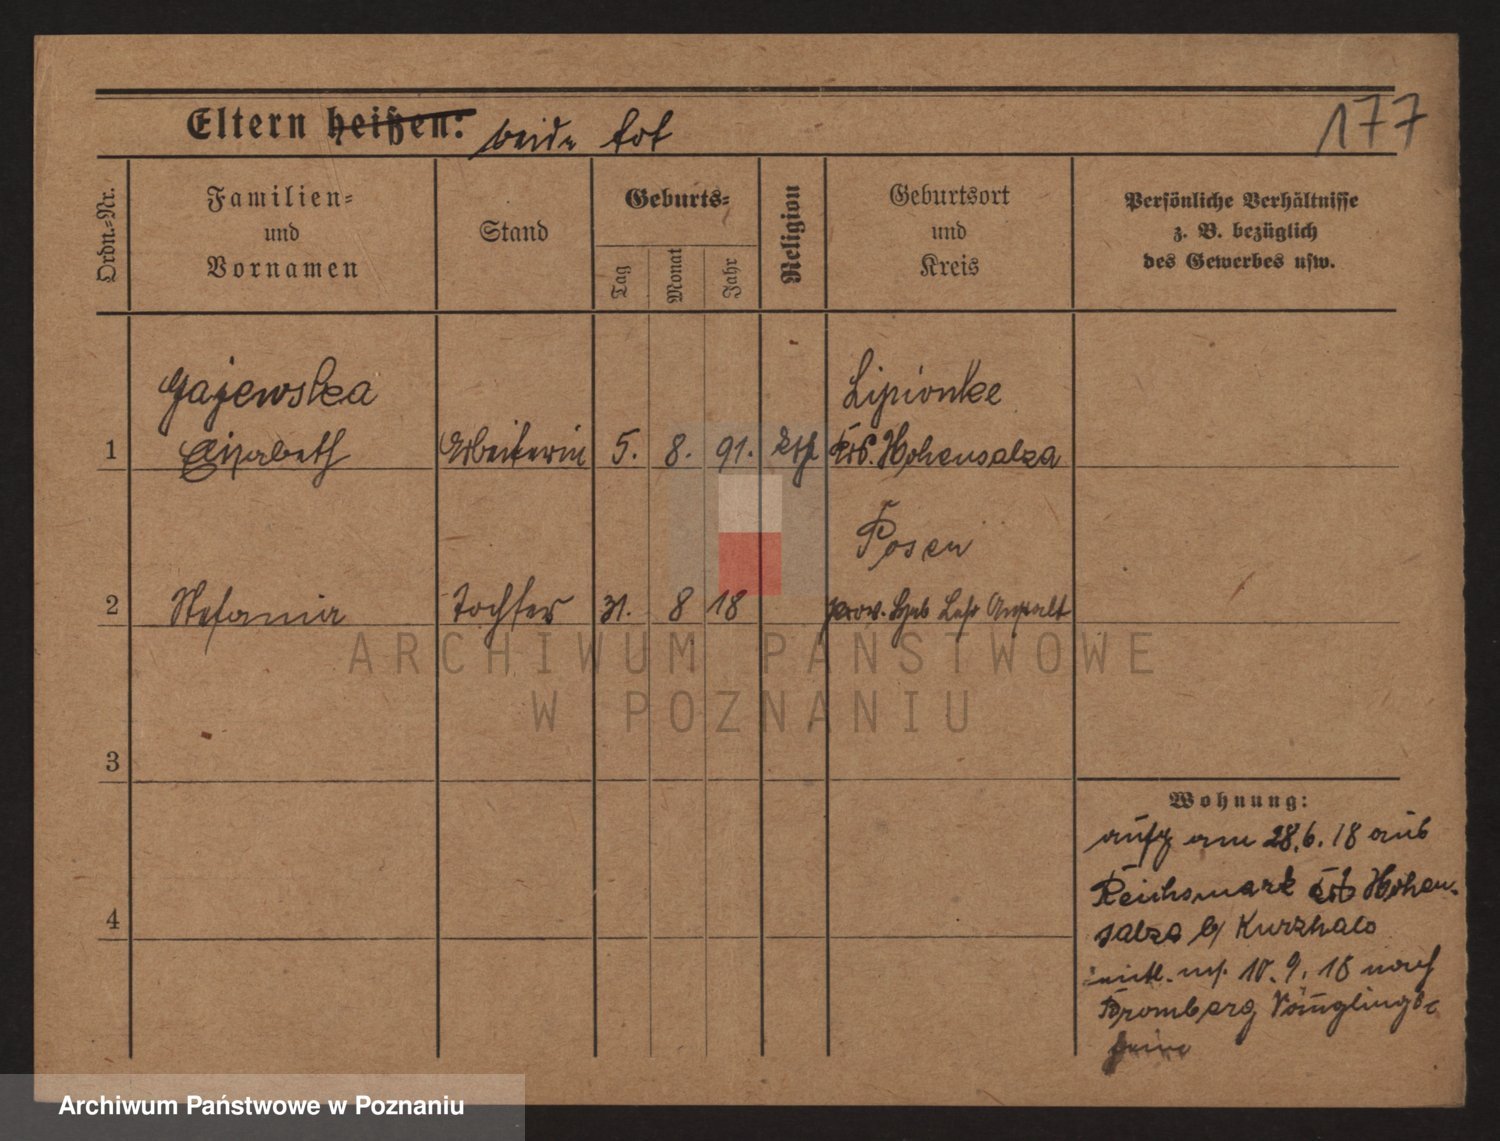 Eltern heißen: beide tot
177
Ordn.-Nr.
Familien- und Vornamen
Stand
Geburts-
Tag
Monat
Jahr
Religion
Geburtsort und Kreis
Persönliche Verhältnisse
z. B. bezüglich
des Gewerbes usw.
Gajewska Lipionke
1 Elisabeth Arbeiterin 5. 8. 91. kth Krs. Hohensalza
Posen
2 Stefania Tochter 31. 8 18 prov. Heb Lehr Anstalt
3
4
Wohnung:
am 28.6.18 aus
Reichsmark Krs Hohen-
salza b/ Kurzhals
10. 9. 18 nach
Bromberg Säuglings-
heim
ARCHIWUM PAŃSTWOWE
W POZNANIU
Archiwum Państwowe w Poznaniu